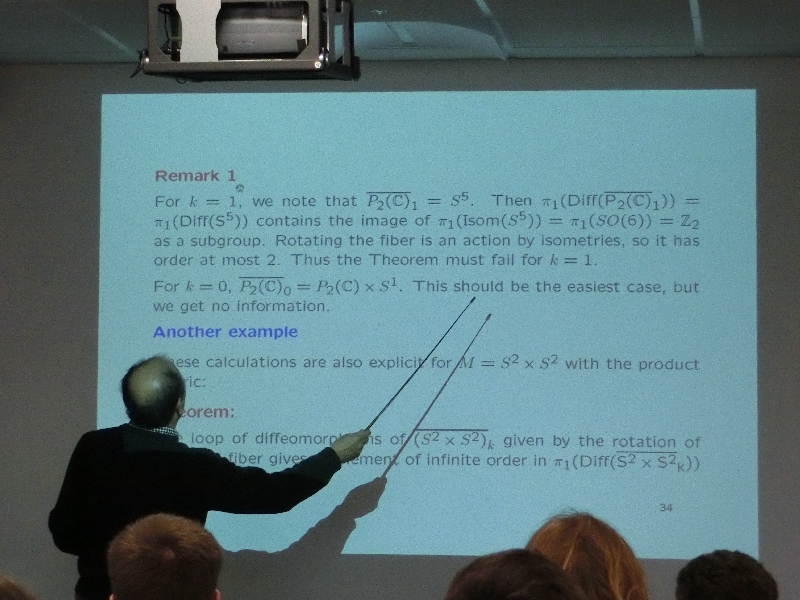 Remark 1
For k = 1, we note that \overline{P₂(ℂ)}₁ = S⁵. Then π₁(Diff(\overline{P₂(ℂ)}₁)) =
π₁(Diff(S⁵)) contains the image of π₁(Isom(S⁵)) = π₁(SO(6)) = ℤ₂
as a subgroup. Rotating the fiber is an action by isometries, so it has
order at most 2. Thus the Theorem must fail for k = 1.
For k = 0, \overline{P₂(ℂ)}₀ = P₂(ℂ) × S¹. This should be the easiest case, but
we get no information.
Another example
hese calculations are also explicit for M = S² × S² with the product
ric:
eorem:
loop of diffeomorp s of \overline{(S² × S²)}ₖ given by the rotation of
fiber gives ement of infinite order in π₁(Diff(\overline{S² × S²}ₖ))
34